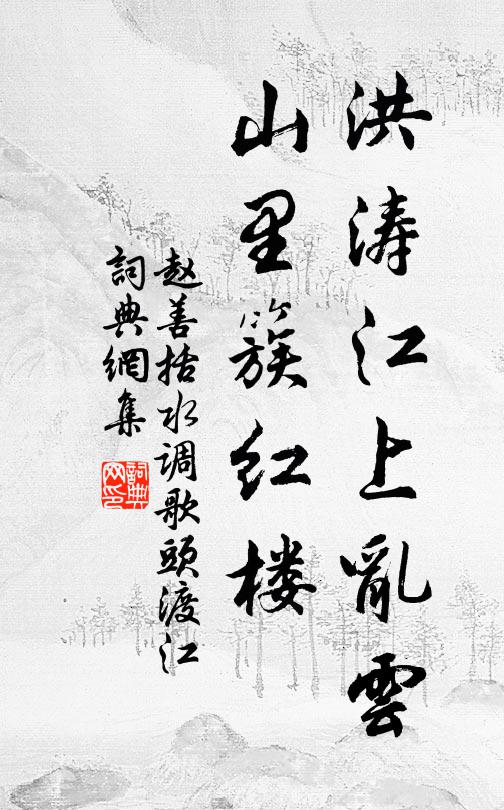 洪涛江上亂雲
山里簇红楼
赵善括水调歌頭渡江
詞典網集
詞典
网印